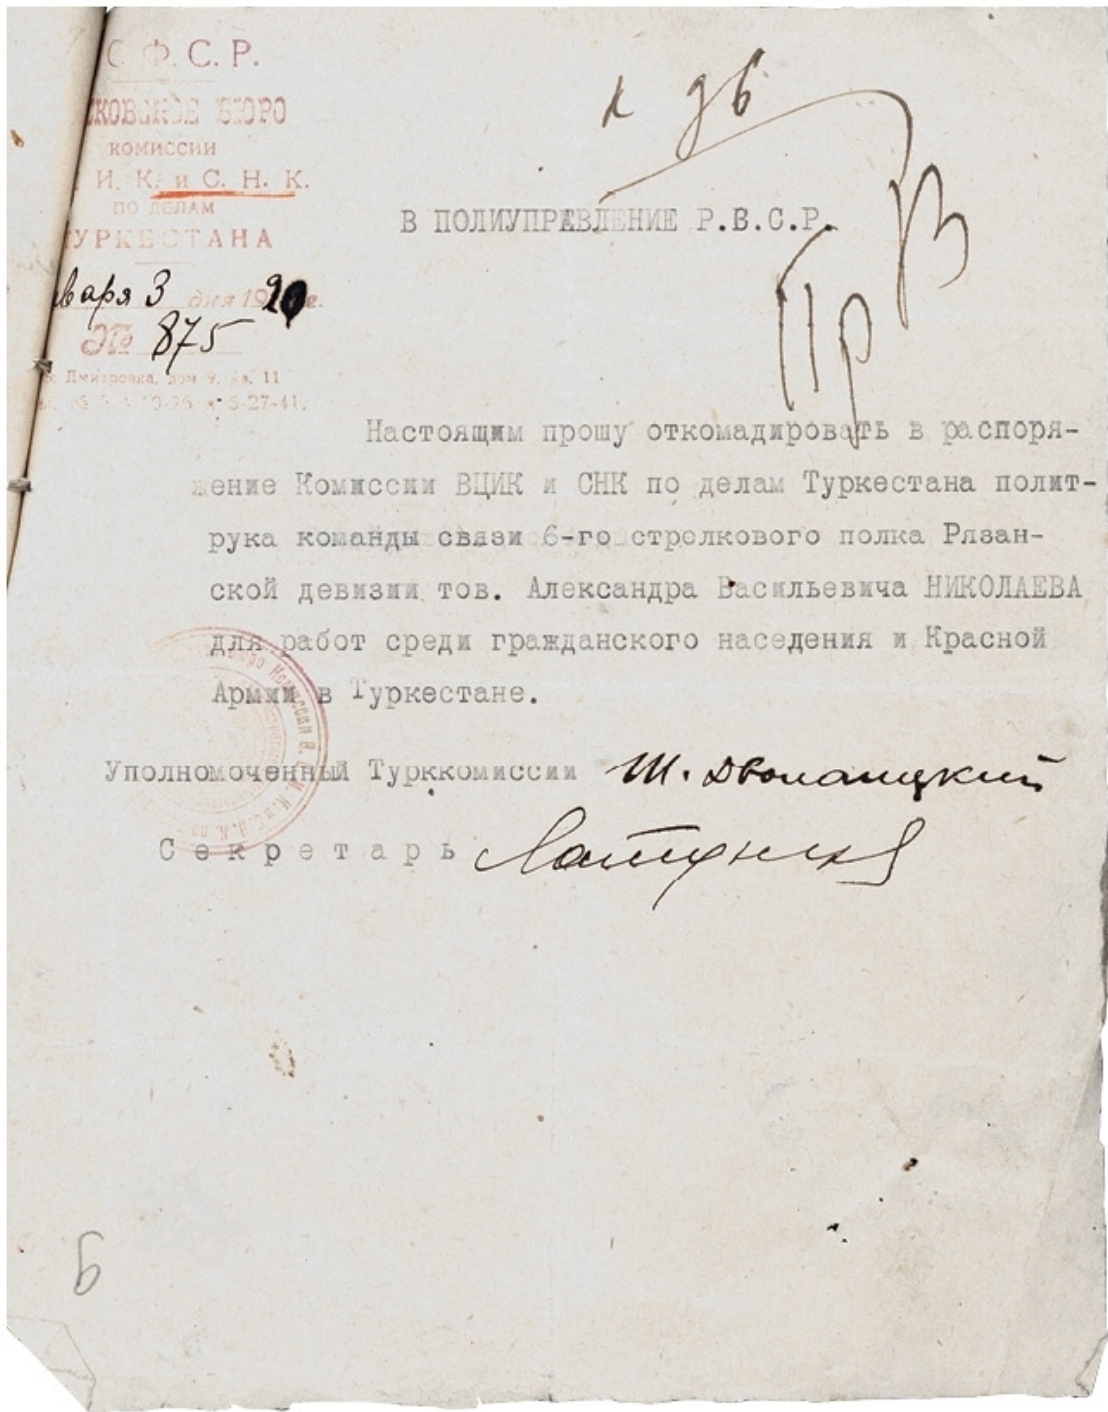 С.Ф.С.Р.
БЮРО
КОМИССИИ
И. К. и С. Н. К.
ПО ДЕЛАМ
УРКЕСТАНА
варя 3 дня 1920 г.
№ 875
Дмитровка, дом 9, кв. 11
5-27-41.
к
В ПОЛИУПРАВЛЕНИЕ Р.В.С.Р.
Настоящим прошу откомадировать в распоря-
жение Комиссии ВЦИК и СНК по делам Туркестана полит-
рука команды связи 6-го стрелкового полка Рязан-
ской девизии тов. Александра Васильевича НИКОЛАЕВА
для работ среди гражданского населения и Красной
Армии в Туркестане.
Уполномоченный Турккомиссии Ш. Дволайцкий
Секретарь
9